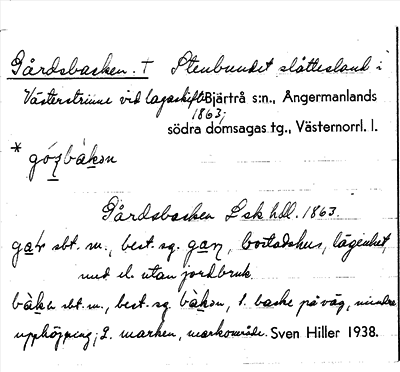 Gårdsbacken. † Stenbundet slåttesland i
Västerstrinne vid lagaskifte Bjärtrå s:n., Ångermanlands
1863;
södra domsagas tg., Västernorrl. l.
* góẓbàkɔn
Gårdsbacken Lsk hdl. 1863.
gaṛ sbt. m., best. sg. gaṇ, bostadshus, lägenhet,
med el. utan jordbruk.
bàkɐ sbt. m., best. sg. bàkɔn, 1. backe på väg, mindre
upphöjning; 2. marken, markområde. Sven Hiller 1938.